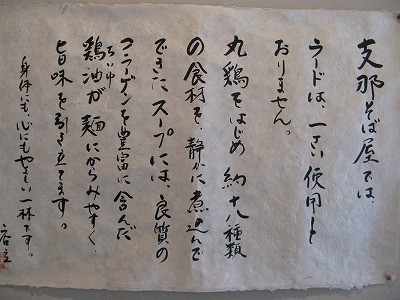 支那そば屋では、
ラードは、一さい使用して
おりません。
丸鶏をはじめ約十八種類
の食材を、静かに煮込んで
できたスープには、良質の
コラーゲンを豊富に含んだ
ちーゆ
鶏油が麺にからみやすく、
旨味を引き立てます。
身体にも心にもやさしい一杯です。
店主